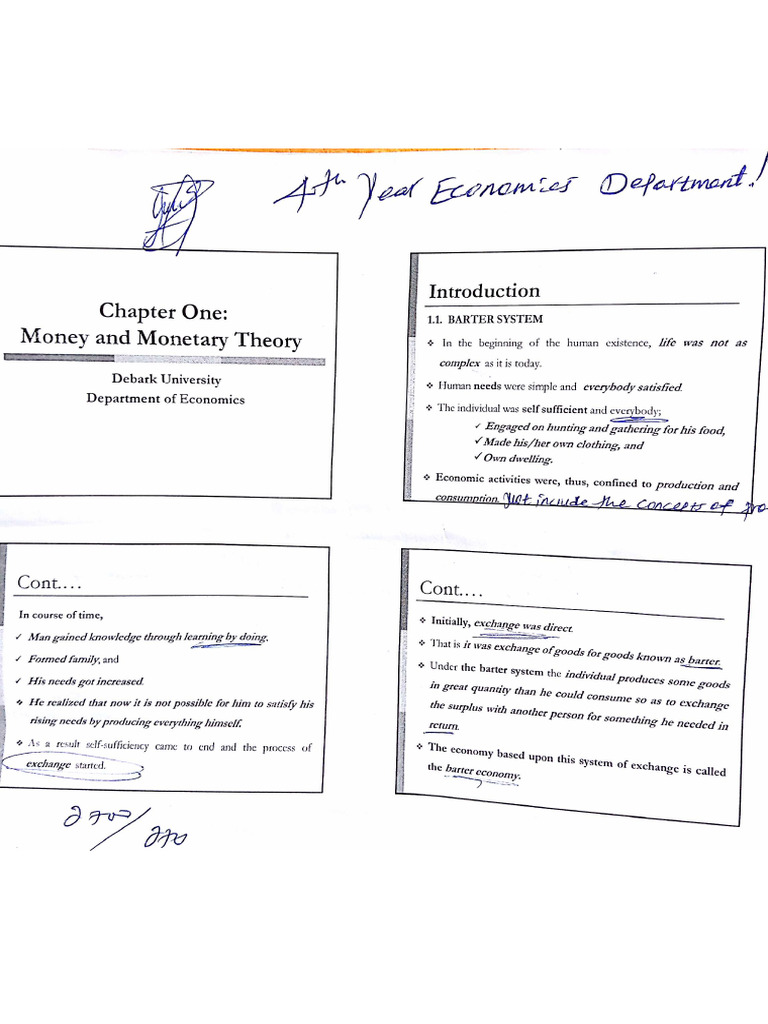 4th Year Economics Department!
Chapter One:
Money and Monetary Theory
Debark University
Department of Economics
Introduction
1.1. BARTER SYSTEM
❖ In the beginning of the human existence, life was not as
complex as it is today.
❖ Human needs were simple and everybody satisfied.
❖ The individual was self sufficient and everybody;
✓ Engaged on hunting and gathering for his food,
✓ Made his/her own clothing, and
✓ Own dwelling.
❖ Economic activities were, thus, confined to production and
consumption. just include the concepts of
Cont....
In course of time,
✓ Man gained knowledge through learning by doing,
✓ Formed family, and
✓ His needs got increased.
❖ He realized that now it is not possible for him to satisfy his
rising needs by producing everything himself.
❖ As a result self-sufficiency came to end and the process of
exchange started.
Cont....
❖ Initially, exchange was direct.
❖ That is it was exchange of goods for goods known as barter.
❖ Under the barter system the individual produces some goods
in great quantity than he could consume so as to exchange
the surplus with another person for something he needed in
return.
❖ The economy based upon this system of exchange is called
the barter economy.